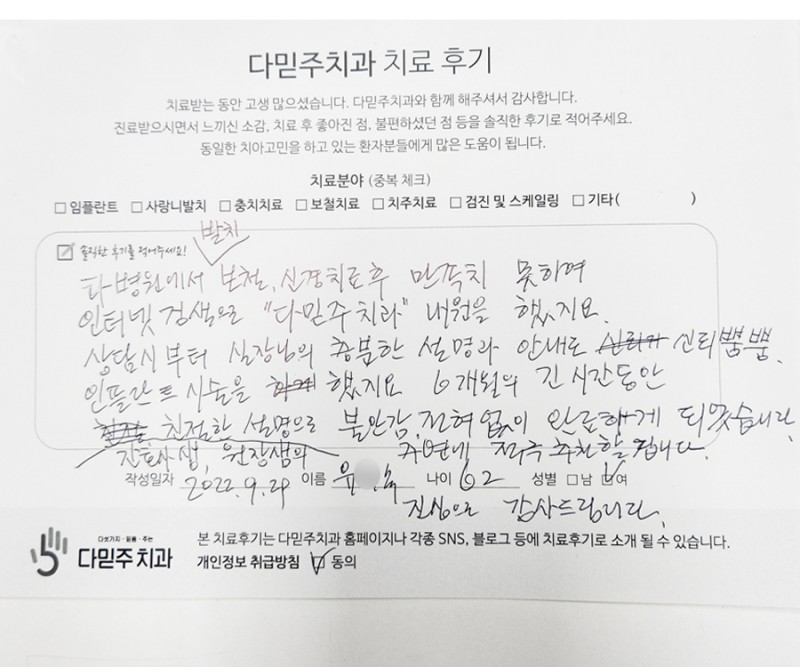 다믿주치과 치료 후기
치료받는 동안 고생 많으셨습니다. 다믿주치과와 함께 해주셔서 감사합니다.
진료받으시면서 느끼신 소감, 치료 후 좋아진 점, 불편하셨던 점 등을 솔직한 후기로 적어주세요.
동일한 치아고민을 하고 있는 환자분들에게 많은 도움이 됩니다.
치료분야 (중복 체크)
□ 임플란트 □ 사랑니발치 □ 충치치료 □ 보철치료 □ 치주치료 □ 검진 및 스케일링 □ 기타( )
발치
솔직한 후기를 적어주세요!
타 병원에서 보철, 신경치료후 만족치 못하여
인터넷 검색으로 "다믿주치과" 내원을 했지요.
상담시부터 실장님의 충분한 설명과 안내로 신뢰뿜뿜.
인플란트 시술을 했지요 6개월의 긴 시간동안
친절한 설명으로 불안감 전혀 없이 완료하게 되었습니다
간호사쌤, 원장쌤의 주변에 적극 추천할 겁니다.
작성일자 2022.9.29 이름 유 나이 62 성별 □남 ☑여
진심으로 감사드립니다.
다섯가지·믿음·주는
다믿주치과
본 치료후기는 다믿주치과 홈페이지나 각종 SNS, 블로그 등에 치료후기로 소개 될 수 있습니다.
개인정보 취급방침 ☑ 동의